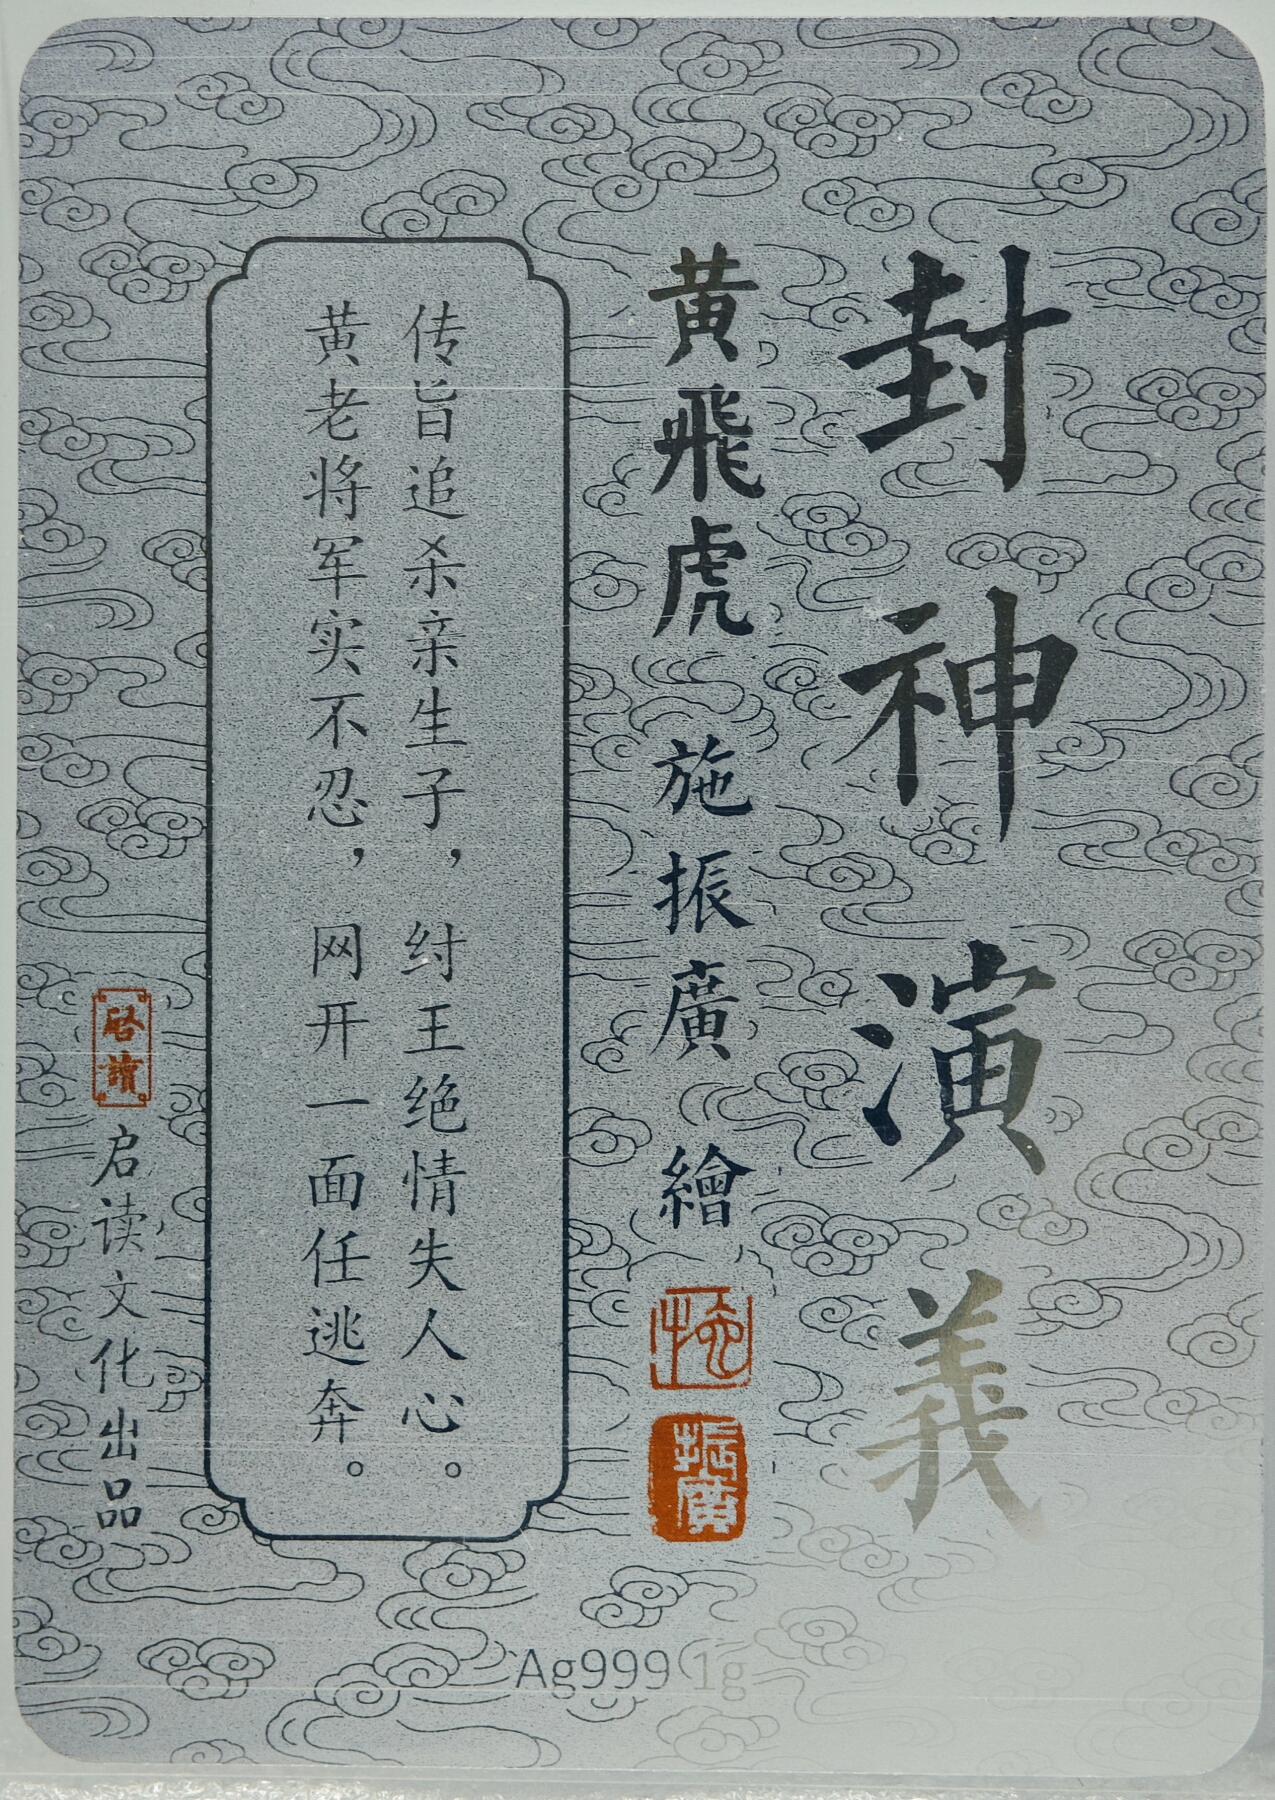 封神演義
黄飛虎 施振廣 繪
振廣
传旨追杀亲生子，纣王绝情失人心。
黄老将军实不忍，网开一面任逃奔。
启讀
启读文化出品
Ag999 1g